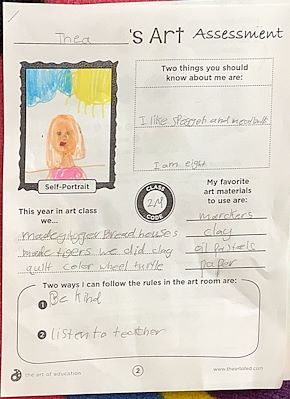 Thea's Art Assessment
Two things you should
know about me are:
I like and meatballs
I am eight
Self-Portrait
CLASS
2M
CODE
My favorite
art materials
to use are:
This year in art class
we...
marckers
clay
oil Pastels
paper
made gingger bread houses
made tigers we did clay
quilt color wheel turtle
Two ways I can follow the rules in the art room are:
1 Be Kind
2 listen to teacher
the art of education
2
www.theartofed.com